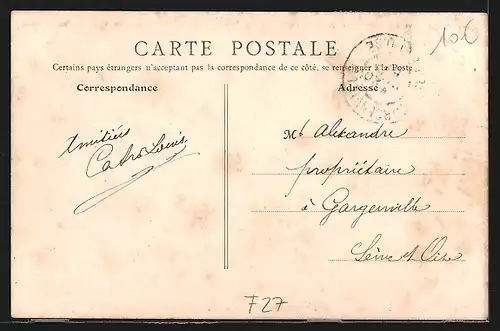 106
CARTE POSTALE
Certains pays étrangers n'acceptant pas la correspondance de ce côté, se renseigner à la Poste
Correspondance
Adresse
Amitiés
Louis
Mr Alexandre
propriétaire
à Gargenville
Seine et Oise
F27